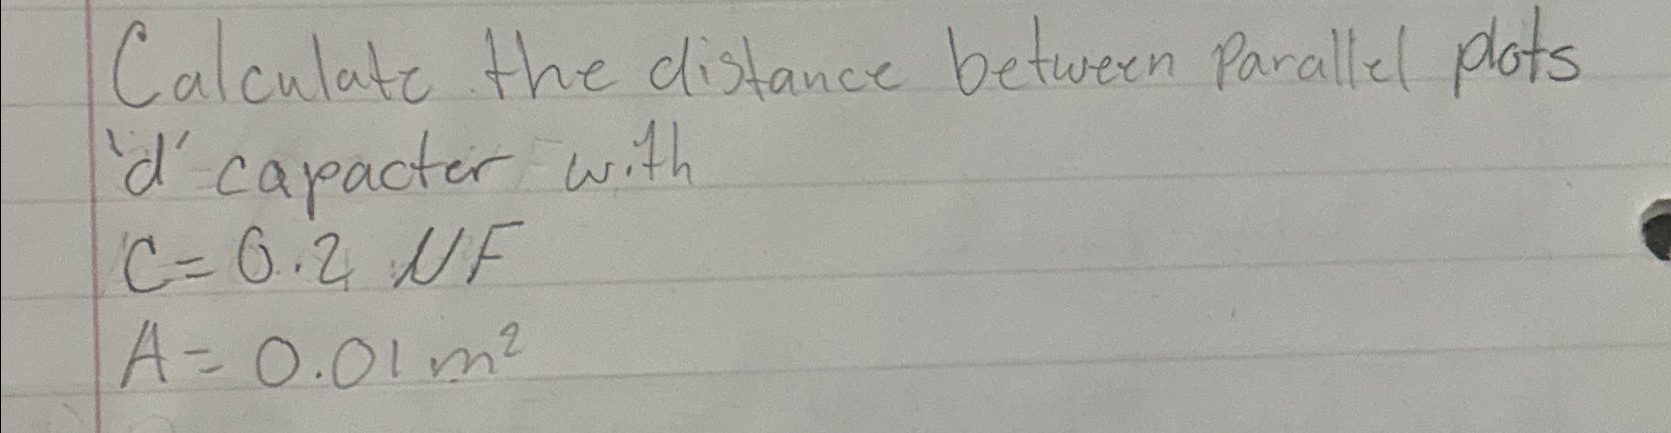 Calculate the distance between parallel plots
'd' capacter with
C = 0.2 NF
A = 0.01 m²